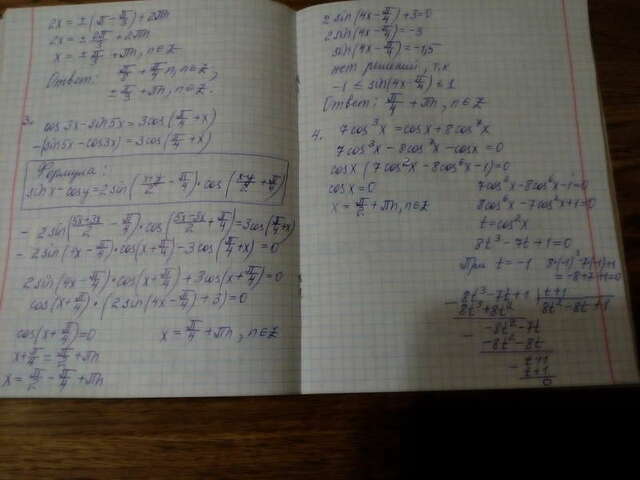 2x = ± (π − π/3) + 2πn
2x = ± 2π/3 + 2πn
x = ± π/3 + πn, n∈Z
Ответ: π/4 + π/2 n, n∈Z,
± π/3 + πn, n∈Z.
3. cos3x − sin5x = 3cos(π/4 + x)
−(sin5x − cos3x) = 3cos(π/4 + x)
Формула:
sinx − cosy = 2sin(x+y/2 − π/4) · cos(x−y/2 + π/4)
− 2sin(5x+3x/2 − π/4) · cos(5x−3x/2 + π/4) = 3cos(π/4 + x)
− 2sin(4x − π/4) · cos(x + π/4) − 3cos(π/4 + x) = 0
2sin(4x − π/4) · cos(x + π/4) + 3cos(x + π/4) = 0
cos(x + π/4) · (2sin(4x − π/4) + 3) = 0
cos(x + π/4) = 0
x + π/4 = π/2 + πn
x = π/2 − π/4 + πn
x = π/4 + πn, n∈Z
2sin(4x − π/4) + 3 = 0
2sin(4x − π/4) = −3
sin(4x − π/4) = −1,5
нет решений, т.к
−1 ≤ sin(4x − π/4) ≤ 1
Ответ: π/4 + πn, n∈Z
4. 7cos³x = cosx + 8cos⁷x
7cos³x − 8cos⁷x − cosx = 0
cosx (7cos²x − 8cos⁶x − 1) = 0
cosx = 0
x = π/2 + πn, n∈Z
7cos²x − 8cos⁶x − 1 = 0
8cos⁶x − 7cos²x + 1 = 0
t = cos²x
8t³ − 7t + 1 = 0
При t = −1 8·(−1)³ − 7·(−1) + 1
= −8 + 7 + 1 = 0
− 8t³ − 7t + 1 | t + 1
8t³ + 8t² | 8t² − 8t + 1
− −8t² − 7t
−8t² − 8t
− t + 1
t + 1
0